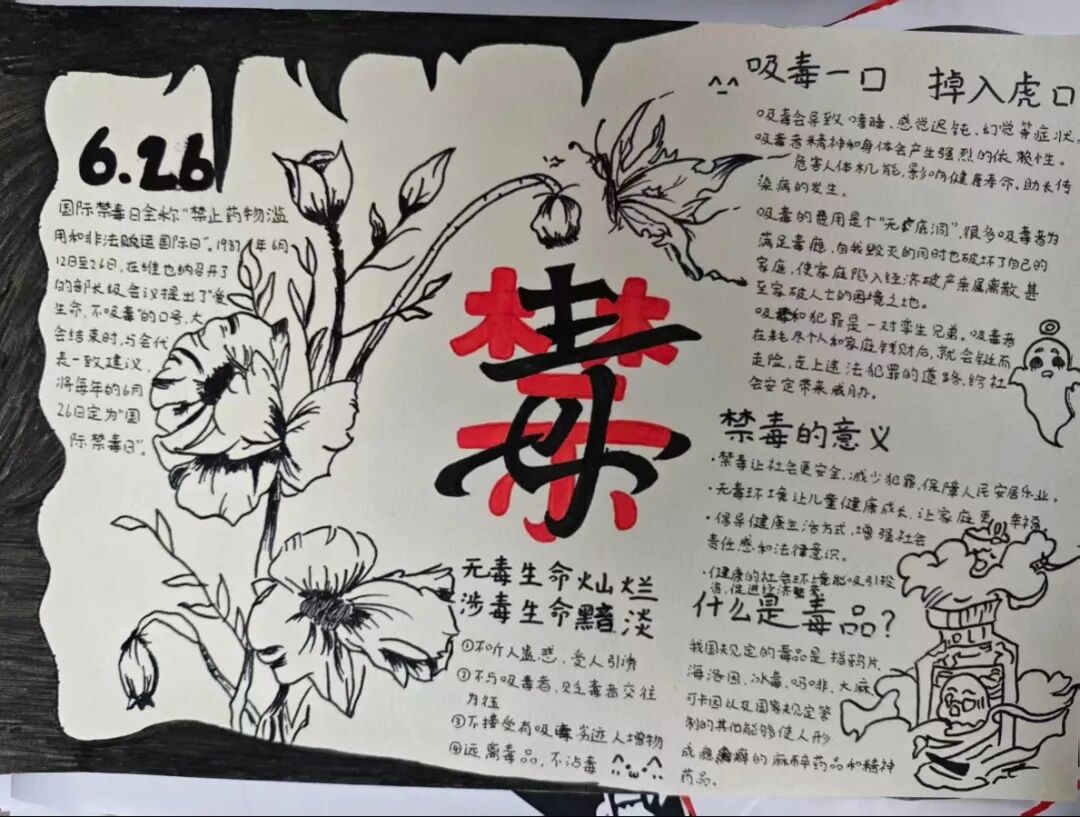 6.26
国际禁毒日全称“禁止药物滥
用和非法贩运国际日”，1987年6月
12日至26日，在维也纳召开了
的部长级会议提出了“爱
生命，不吸毒”的口号，大
会结束时，与会代
表一致建议，
将每年的6月
26日定为“国
际禁毒日”。
禁毒
无毒生命灿烂
涉毒生命黯淡
①不听人蛊惑，受人引诱
②不与吸毒者，贩毒者交往
为伍
③不接受有吸毒劣迹人赠物
④远离毒品，不沾毒
吸毒一口 掉入虎口
吸毒会导致嗜睡、感觉迟钝、幻觉等症状，
吸毒者精神和身体会产生强烈的依赖性。
危害人体机能，影响健康寿命，助长传
染病的发生。
吸毒的费用是个“无底洞”，很多吸毒者为
满足毒瘾，自我毁灭的同时也破坏了自己的
家庭，使家庭陷入经济破产亲属离散甚
至家破人亡的困境之地。
吸毒和犯罪是一对孪生兄弟。吸毒者
在耗尽个人和家庭钱财后，就会铤而
走险，走上违法犯罪的道路，给社
会安定带来威胁。
禁毒的意义
·禁毒让社会更安全，减少犯罪，保障人民安居乐业。
·无毒环境让儿童健康成长，让家庭更幸福
·倡导健康生活方式，增强社会
责任感和法律意识。
·健康的社会环境能吸引投
资，促进经济繁荣
什么是毒品？
我国规定的毒品是指鸦片
海洛因，冰毒，吗啡，大麻
可卡因以及国家规定管
制的其他能够使人形
成瘾癖的麻醉药品和精神
药品。